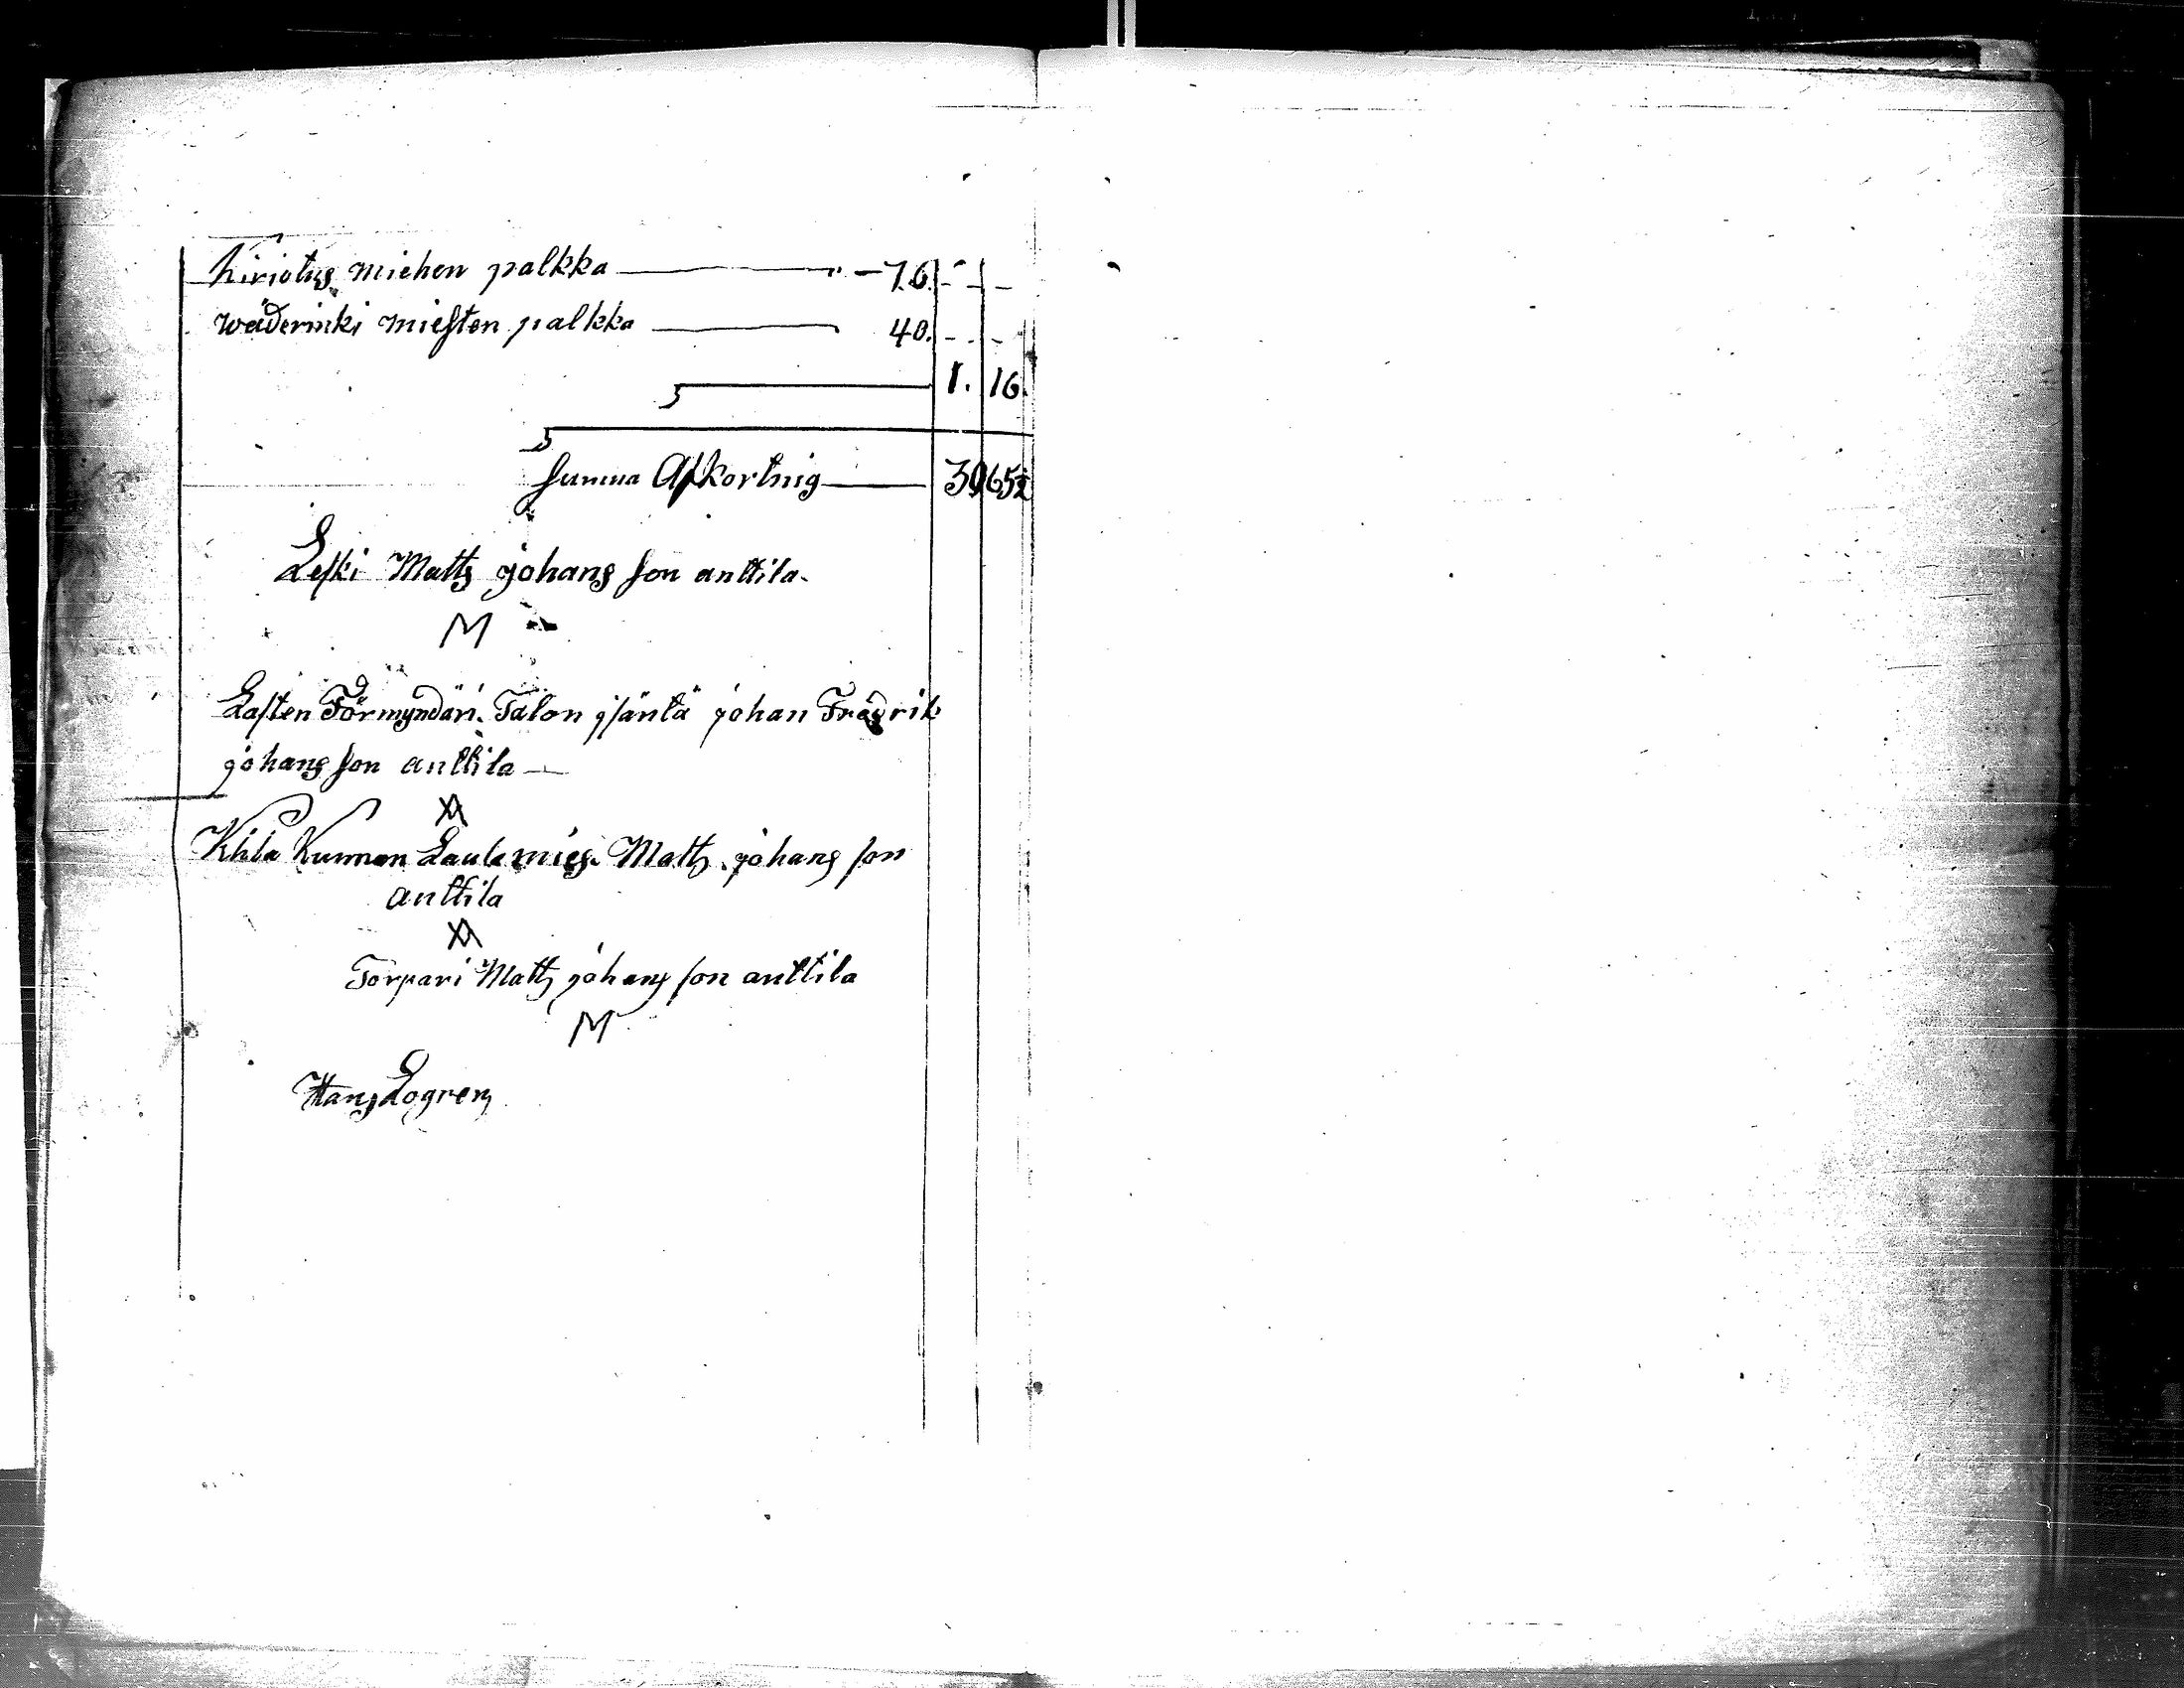 Kiriotus miehen palkka — " — 76. - - -
wäderinki miesten palkka — 40. - - -
1. 16.
Summa Afkortnig — 39 65½
Leski Matts johans son anttila.
M
Lasten Förmyndäri. Talon isäntä johan Fredrik
johans son anttila —
Kihla Kunnan Lautamies. Matts johans son
anttila
Torpari Matts johans son anttila
M
Hans Logren